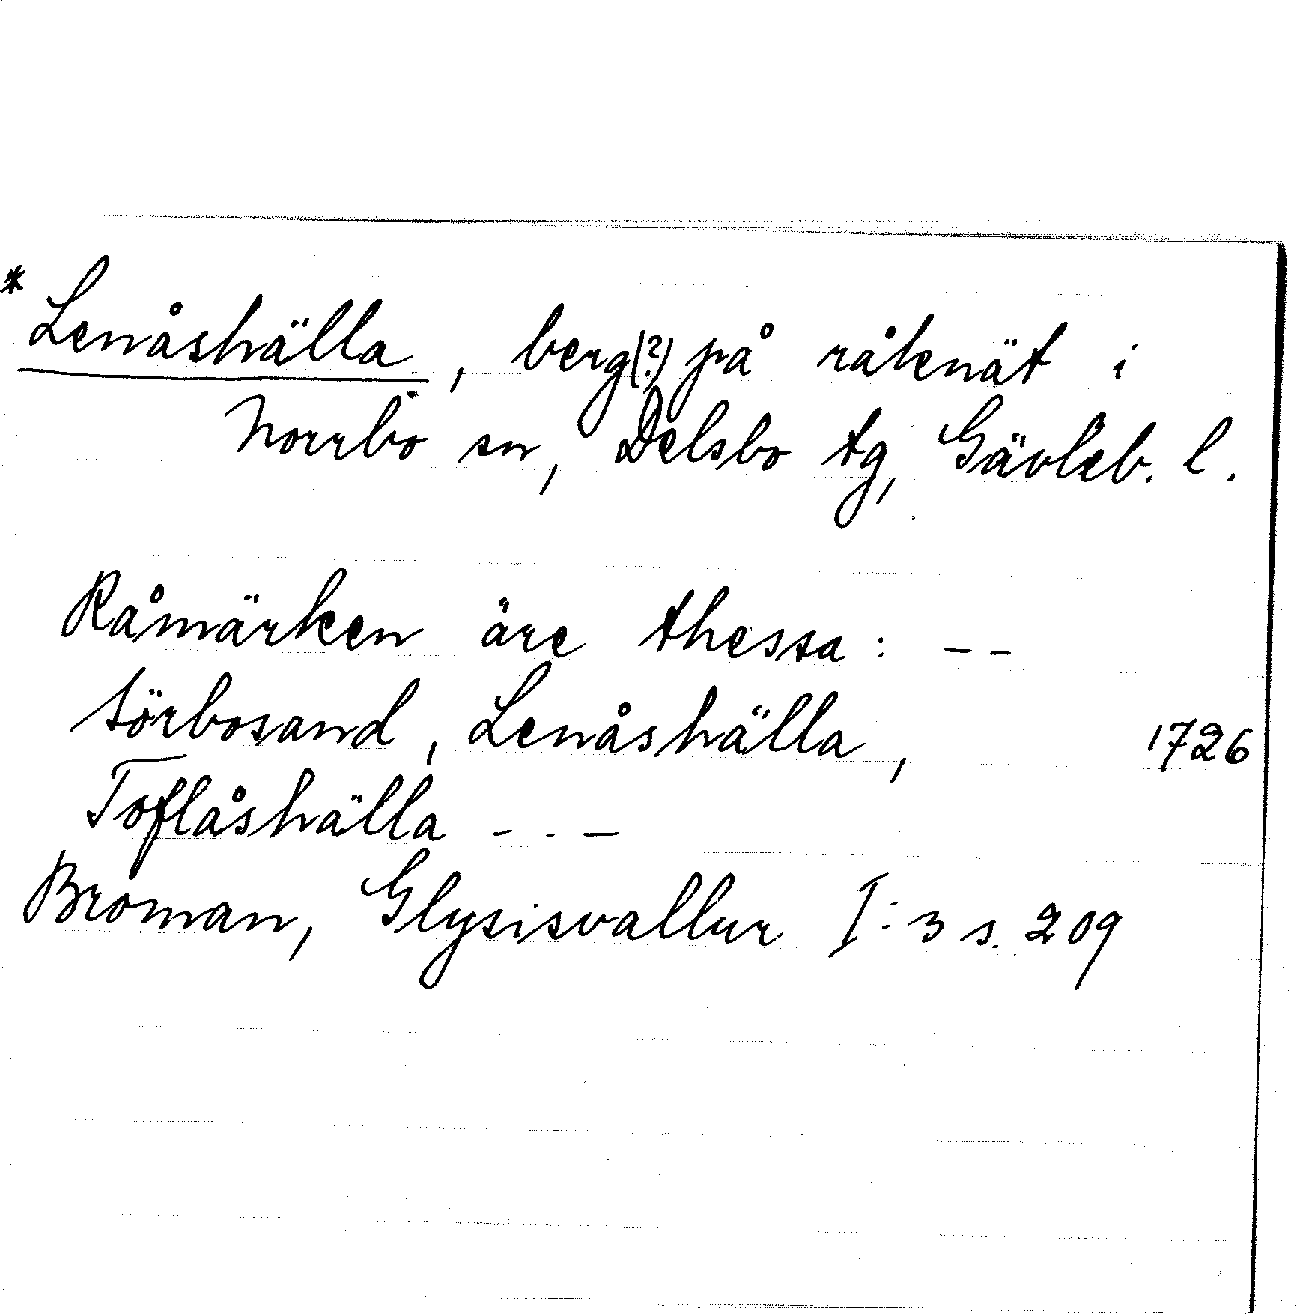 * Lenåshälla, berg(?) på råknät i
Norrbo sn, Delsbo tg, Gävleb. l.
Råmärken äre thessa: - -
Sörbosand, Lenåshälla, 1726
Toflåshälla - - -
Broman, Glysisvallur I:3 s. 209